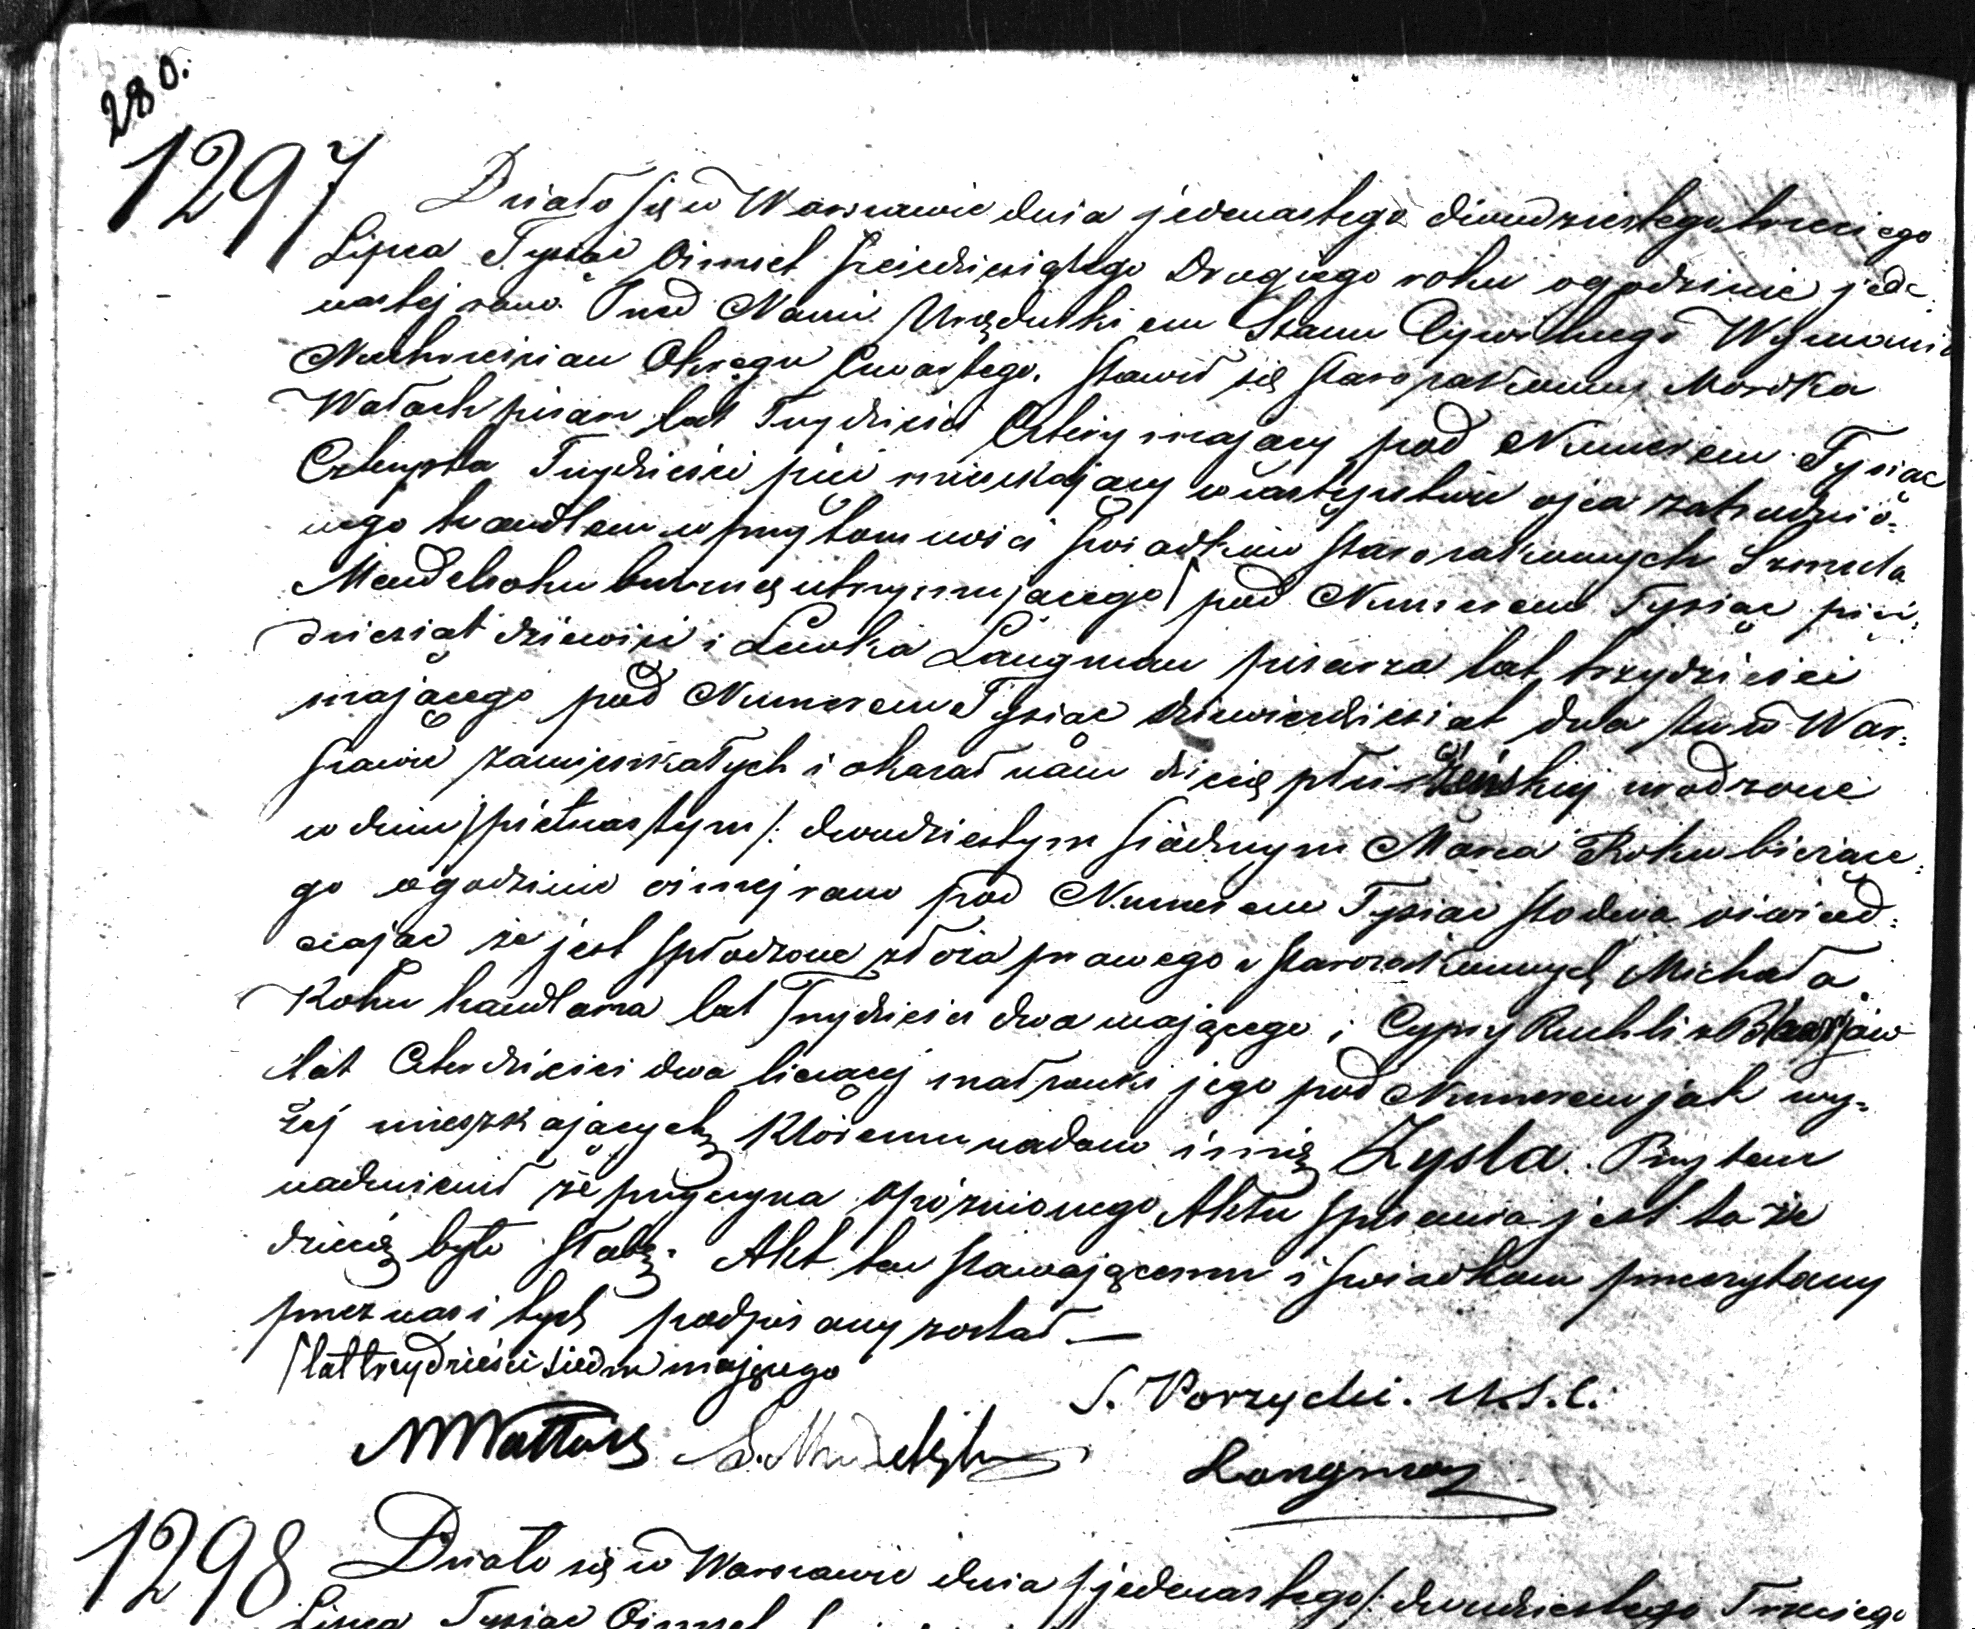 280.
1297
Działo się w Warszawie dnia jedenastego dwudziestego trzeciego
Lipca Tysiąc Ośmset sześćdziesiątego Drugiego roku o godzinie jede-
nastej rano Przed Nami Urzędnikiem Stanu Cywilnego Wyznania
Niechrześcian Okręgu Czwartego. Stawił się starozakonny Mordka
Wałach pisarz lat Trzydzieści Cztery mający pod Numerem Tysiąc
Czterysta Trzydzieści pięć mieszkający w zastępstwie ojca zatrudnio-
nego handlem w przytomności świadków starozakonnych Szmula
Mendelsohn utrzymującego / pod Numerem Tysiąc pięć-
dziesiąt dziewięć i Lewka Langman pisarza lat trzydzieści
mającego pod Numerem Tysiąc dziewiędziesiąt dwa tu w War-
szawie zamieszkałych i okazał nam dziecię płci żeńskiej urodzone
w dniu / piętnastym /: dwudziestym siódmym Marca Roku bieżące-
go o godzinie ósmej rano pod Numerem Tysiąc sto dwa oświad-
czając że jest spłodzone z łoża prawego z starozakonnych Michała
Kohn handlarza lat Trzydzieści dwa mającego i Cypry Ruchli z
lat Czterdzieści dwa liczącej małżonki jego pod Numerem jak wy-
żej mieszkających, któremu nadano imię Zysla. Przytem
nadmienił że przyczyna opóźnionego Aktu spisania jest ta że
dziecię było słabe. Akt ten stawającemu i świadkom przeczytany
przez nas i tych podpisany został —
/ lat trzydzieści siedm mającego
S. Porzycki. U.S.C.
MWałłach S. Mendelsohn Langman
1298
Działo się w Warszawie dnia / jedenastego /: dwudziestego Trzeciego
Lipca Tysiąc Ośmset